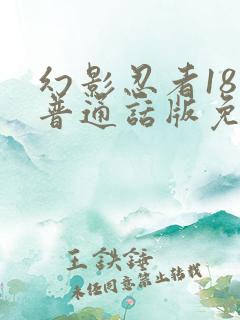 幻影忍者18
普通話版免
王鉄錘
未经同意禁止转载